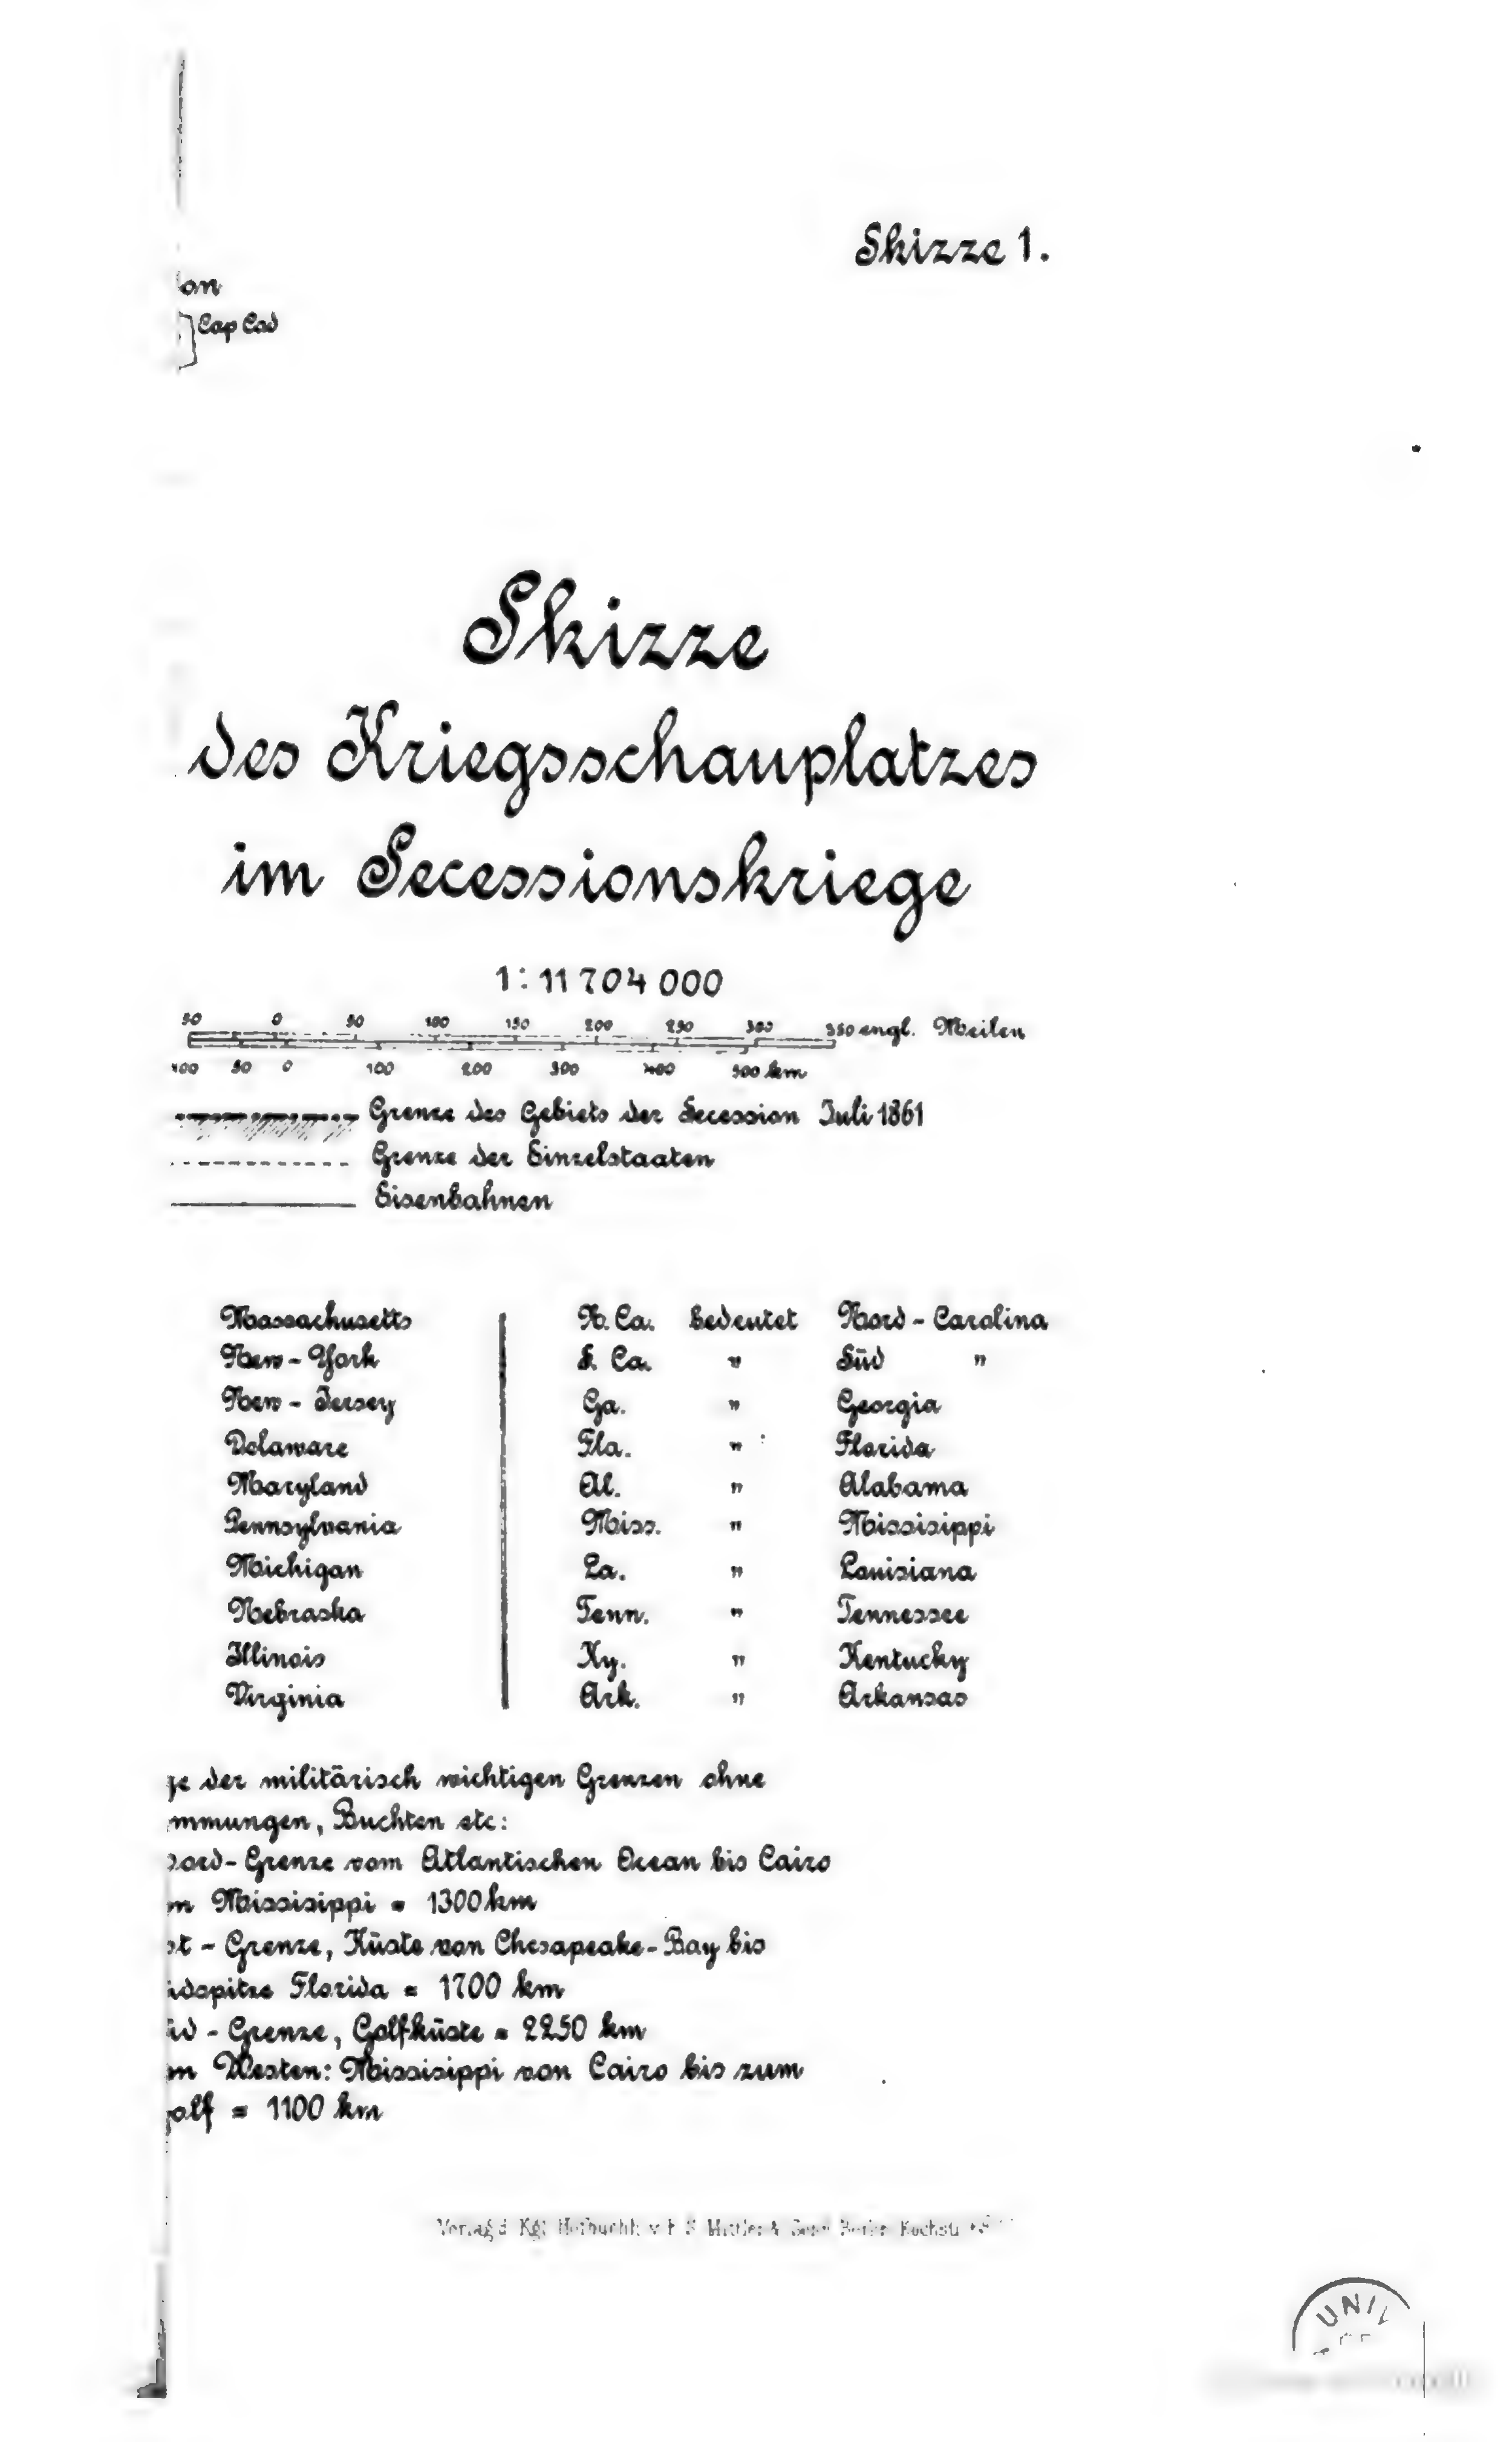 Skizze 1.
on
Cap Cod
Skizze
des Kriegsschauplatzes
im Secessionskriege
1:11704000
50 0 50 100 150 200 250 300 350 engl. Meilen
100 50 0 100 200 300 400 500 km
Grenze des Gebiets der Secession Juli 1861
Grenze der Einzelstaaten
Eisenbahnen
Massachusetts N. Ca. bedeutet Nord-Carolina
New-York S. Ca. " Süd "
New-Jersey Ga. " Georgia
Delaware Fla. " Florida
Maryland Al. " Alabama
Pennsylvania Miss. " Missisippi
Michigan La. " Louisiana
Nebraska Tenn. " Tennessee
Illinois Ky. " Kentucky
Virginia Ark. " Arkansas
ge der militärisch wichtigen Grenzen ohne
mmungen, Buchten etc:
ord-Grenze vom Atlantischen Ocean bis Cairo
m Missisippi = 1300 km
st-Grenze, Küste von Chesapeake-Bay bis
üdspitze Florida = 1700 km
üd-Grenze, Golfküste = 2250 km
m Westen: Missisippi von Cairo bis zum
golf = 1100 km
Verlag d. Kgl. Hofbuchh. v. E. S. Mittler & Sohn Berlin Kochstr.
UNI